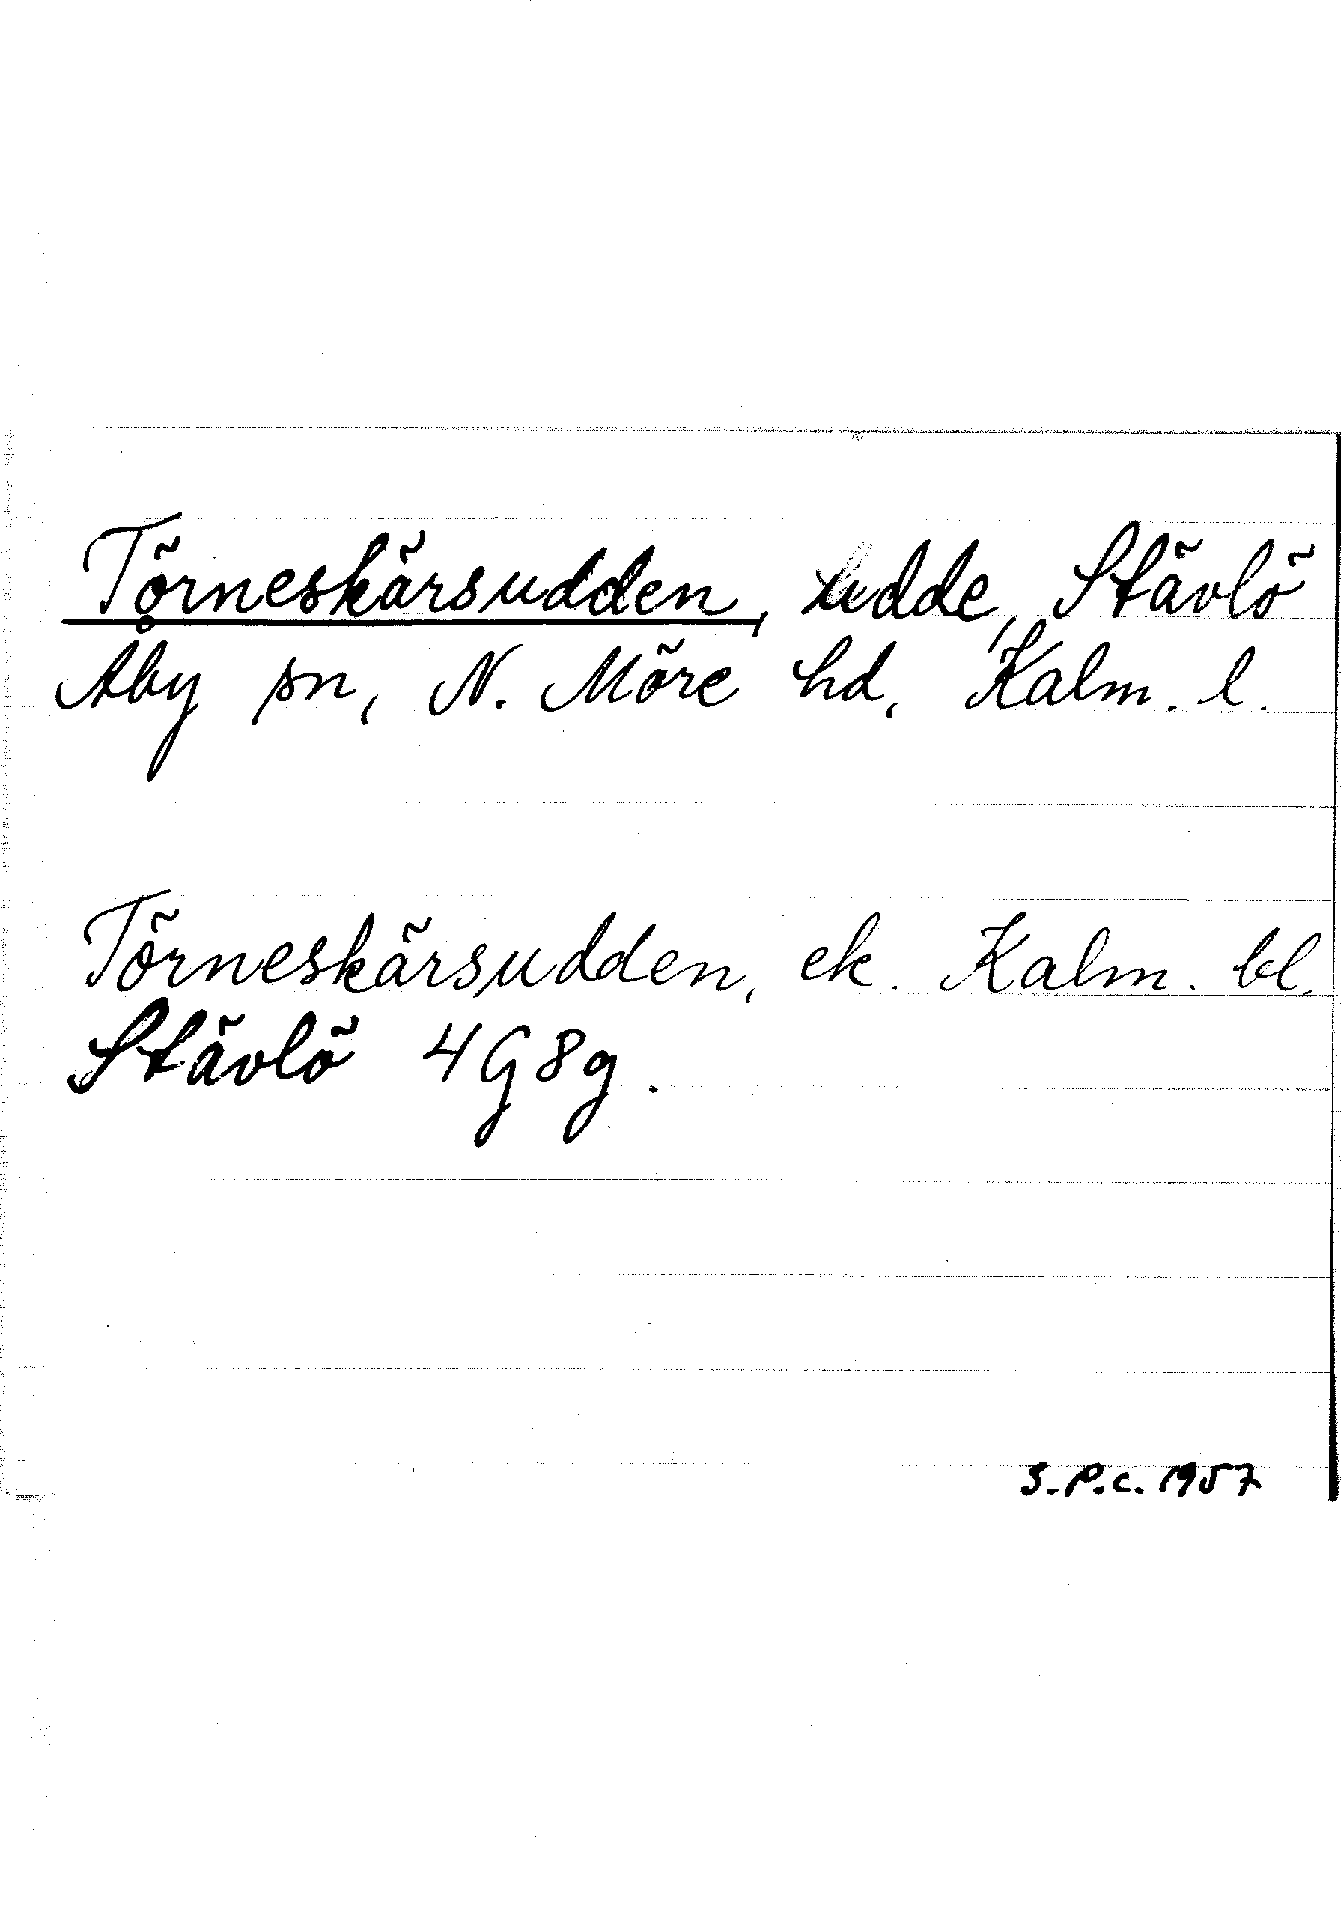 Törneskärsudden, udde, Stävlö
Åby sn, N. Möre hd, Kalm. l.
Törneskärsudden, ek. Kalm. bl.
Stävlö 4G8g.
S.P.C. 1957